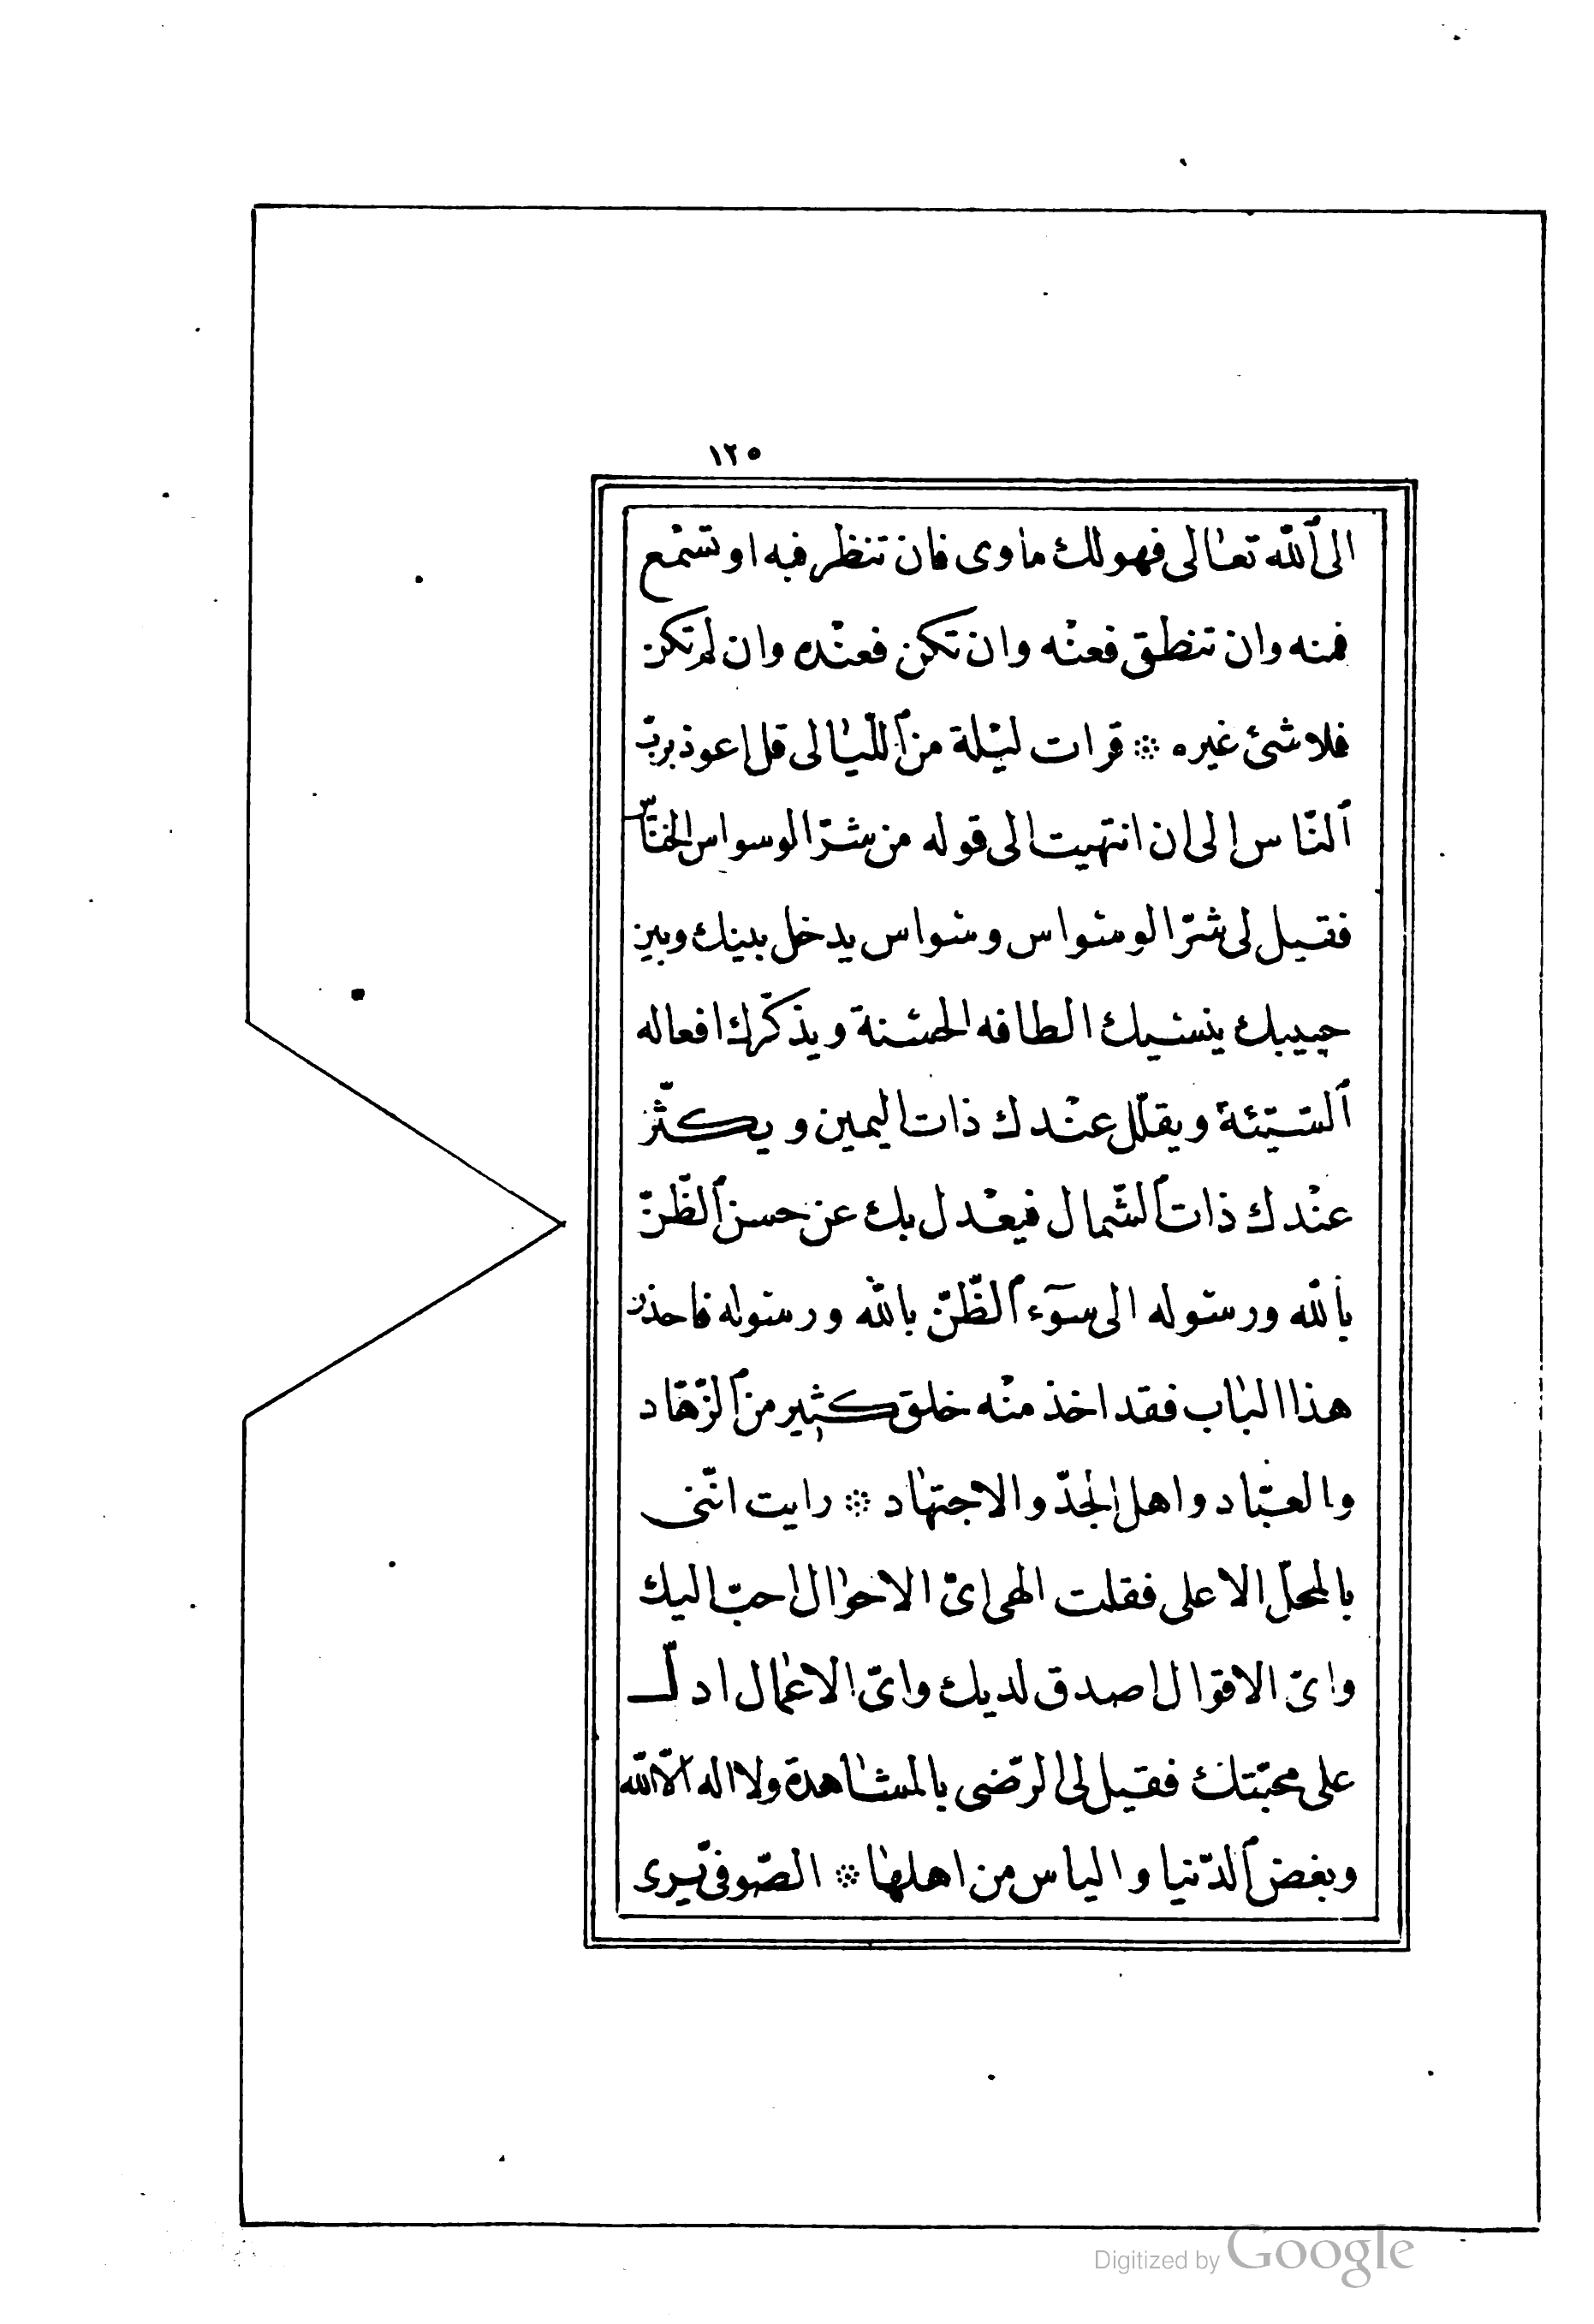 ١٢٥
الى ٱللّه تعالى فهولك ماوى فان تنظر فيه او تستمع
فمنه وان تنطق فعنْه وان تكن فعنْده وان لم تكن
فلاشئ غيره ܀ قرات ليْلة من ٱللّيالى قل اعوذ بربّ
ٱلنّاس الى ان انتهيت الى قوله من شرّ الوسواس الخنّاس
فقيل لى شرّ الوسْواس وسْواس يدخل بينك وبين
حبيبك ينسْيك الطافه الحسْنة ويذكّرك افعاله
ٱلسّيّئة ويقلّل عنْدك ذات اليمين ويكثّر
عنْدك ذات ٱلشّمال فيعْدل بك عن حسن ٱلظّنّ
بٱللّه ورسوله الى سوٓء ٱلظّنّ باللّه ورسوله فاحذر
هذا الباب فقد اخذ منْه خلق كثير من ٱلزّهّاد
والعبّاد واهل الجدّ والاجتهاد ܀ رايت انّنى
بالمحلّ الاعلى فقلت الهى اىّ الاحوال احبّ اليك
واىّ الاقوال اصدق لديك واىّ الاعمال ادلّ
على محبّتك فقيل لى الرّضى بالمشاهدة ولا اله الّا اللّه
وبغض ٱلدّنيا والياس من اهلها ܀ الصّوفىّ يرى
Digitized by Google